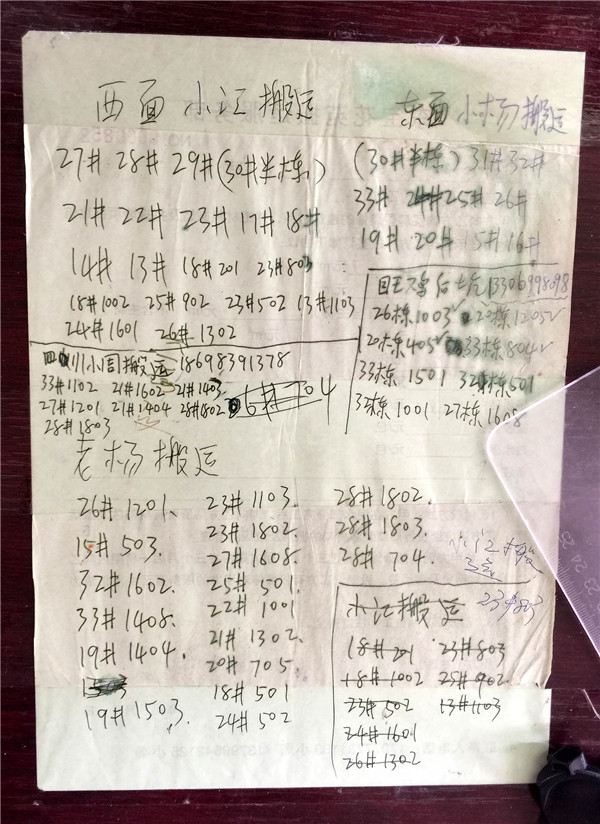 西面 小江 搬运
27# 28# 29# (30#半栋)
21# 22# 23# 17# 18#
14# 13# 18#201 23#803
18#1002 25#902 23#502 13#1103
24#1601 26#1302
东面 小杨 搬运
(30#半栋) 31# 32#
33# 24# 25# 26#
19# 20# 15# 16#
13306998098
26栋1003√ 20栋1205√
20栋405√ 33栋804√
33栋1501 32栋501
32栋1001 27栋1608
四川小周搬运 18698391378
33#1102 21#1602 21#1403
27#1201 27#1404 28#802 6#704
28#1803
老杨搬运
26#1201.
15#503.
32#1602.
33#1408.
19#1404.
19#1503.
23#1103.
23#1802.
27#1608.
25#501.
22#1001
21#1302.
20#705.
18#501
24#502
28#1802.
28#1803.
28#704.
小江搬
23#803
小江搬运
18#201 23#803
18#1002 25#902.
23#502 13#1103
24#1601
26#1302